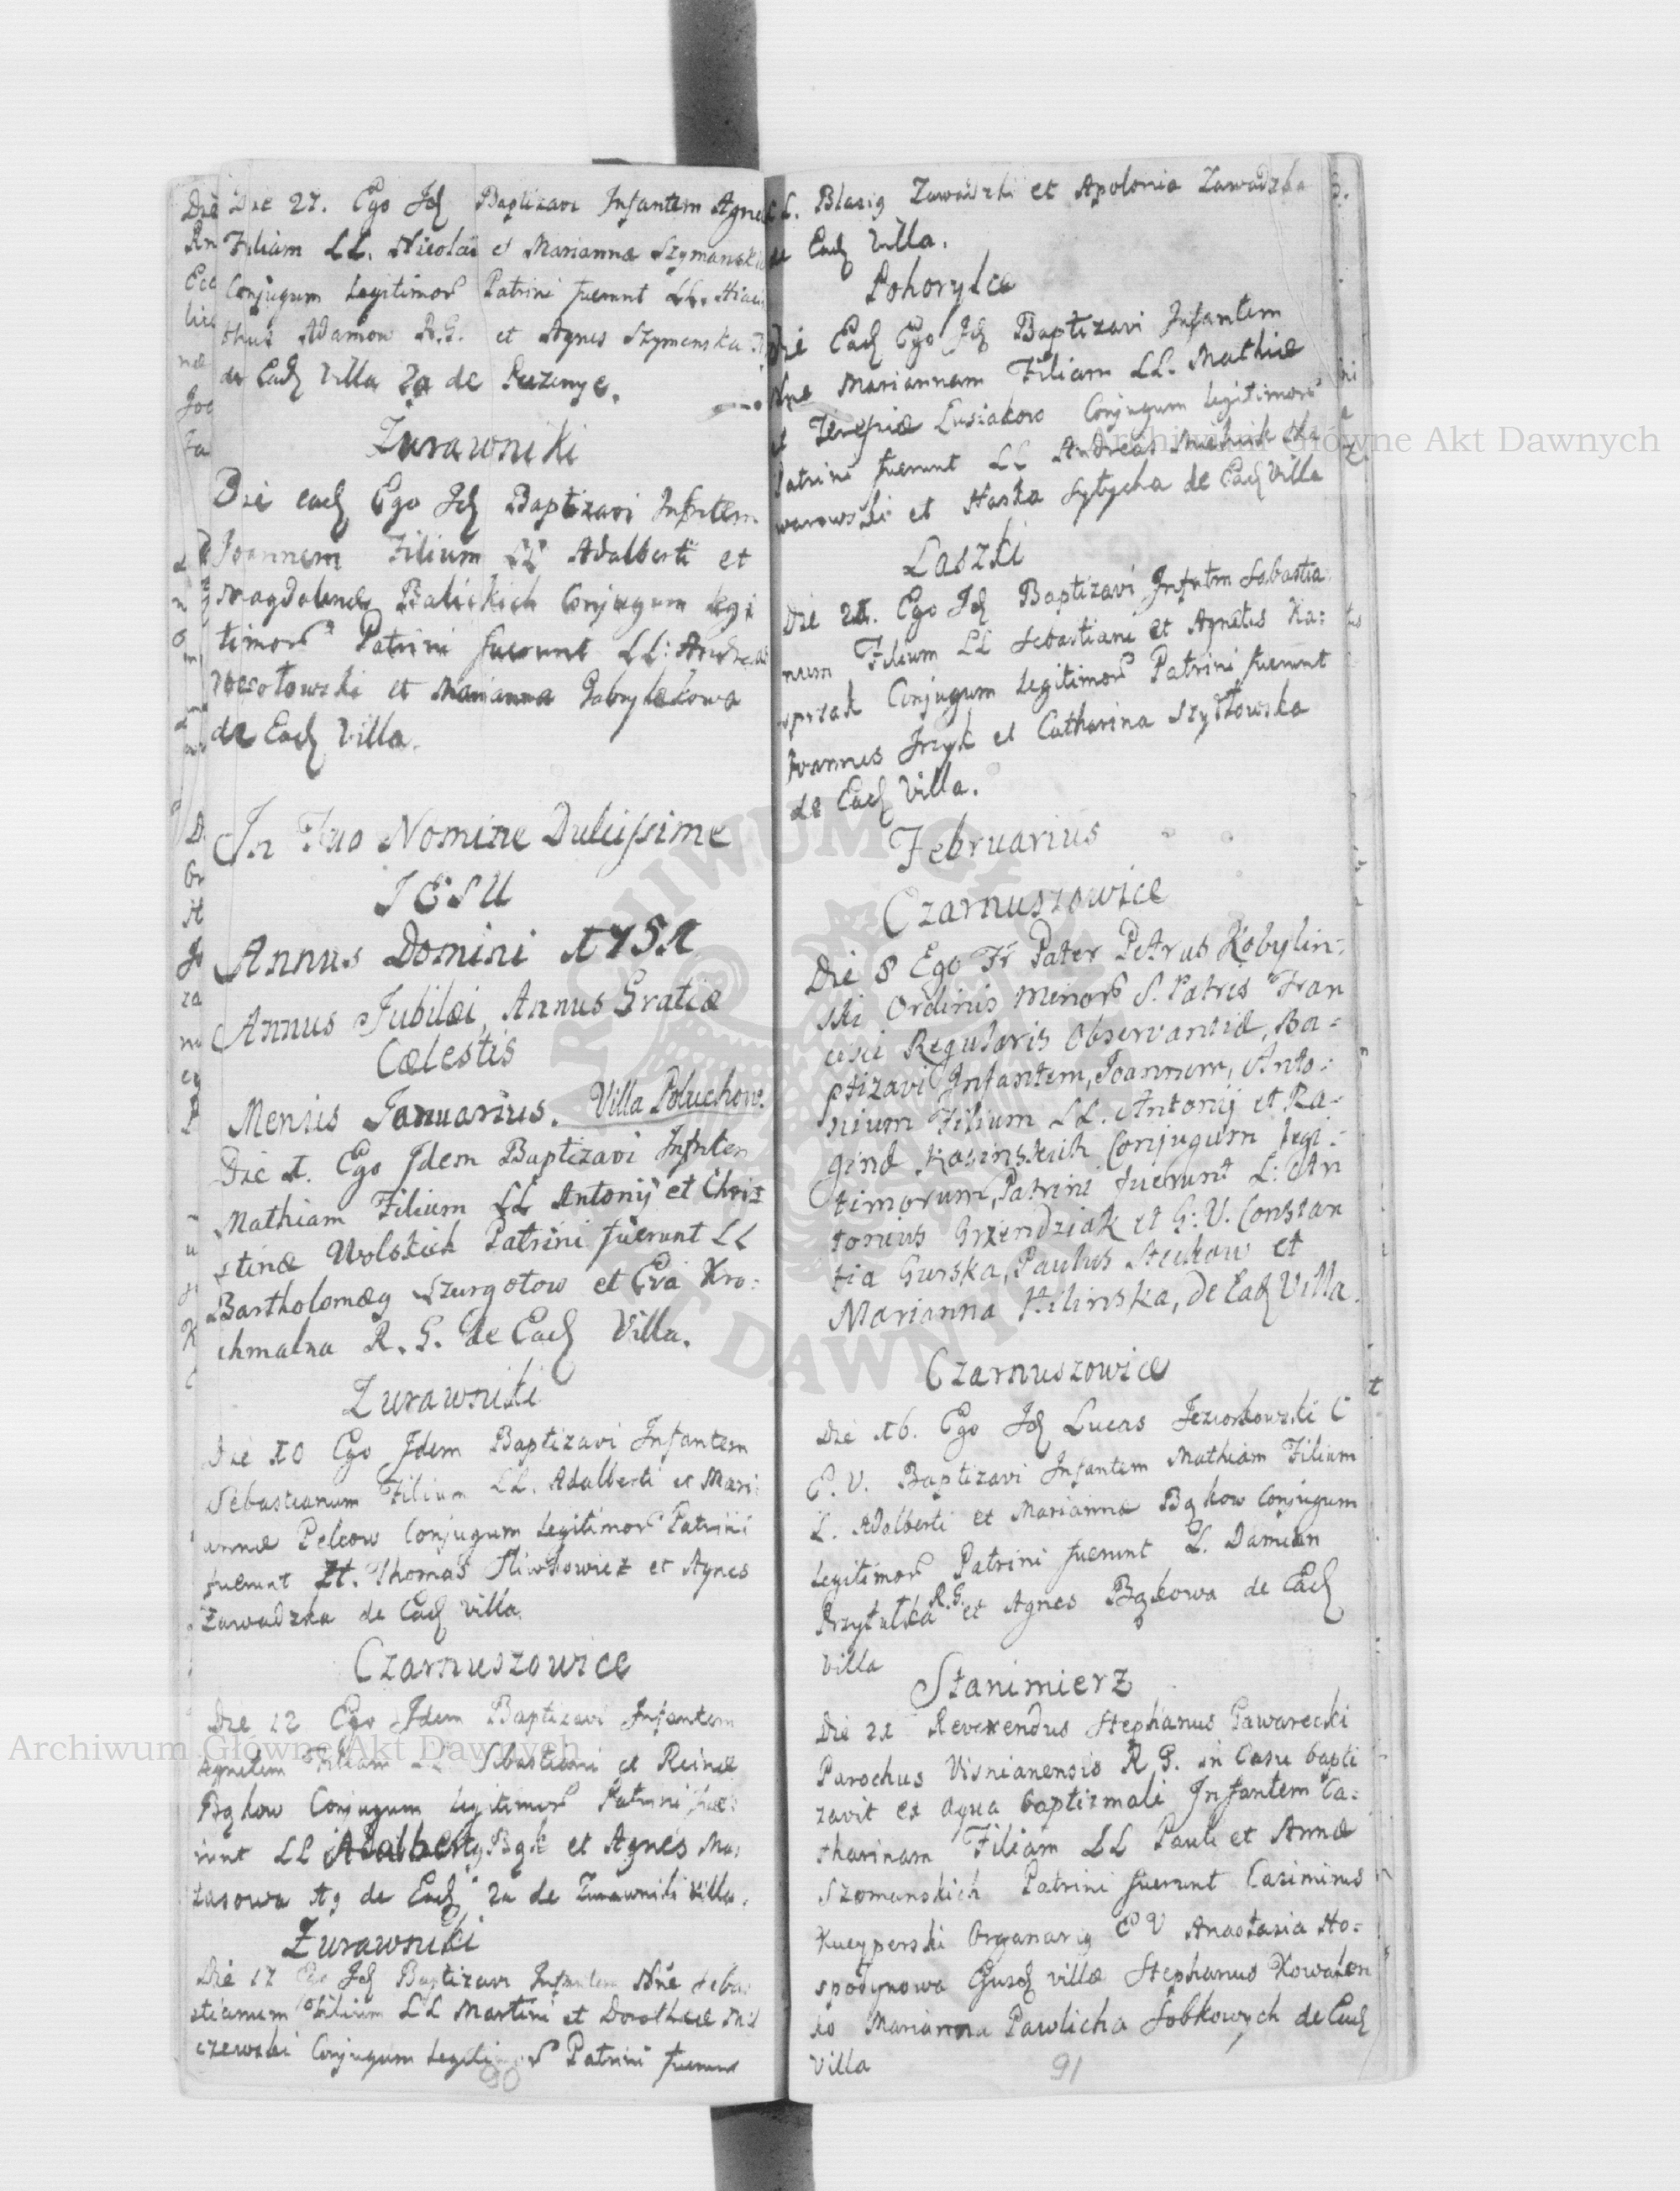 Die 27. Ego Jd Baptizavi Infantem Agne
Filiam LL. Nicolai et Marianna Szymanskic
Conjugum Legitimor Patrini fuerunt LL. Hiaci
thus Adamow R.G. et Agnes Szymenska
de Ead Villa 2a de
Zurawniki
Die ead Ego Jd Baptizavi Infntem
Joannem Filium LL Adalberti et
Magdalenæ Balickich Conjugum legi
timor Patrini fuerunt LL: Andreas
et Marianna Gabrylakowa
de Ead Villa.
In Tuo Nomine Dulcissime
JESU
Annus Domini 1751
Annus Jubilæi, Annus Gratiæ
Cælestis
Mensis Januarius. Villa Poluchow.
Die 1. Ego Jdem Baptizavi Infnten
Mathiam Filium LL Antonij et Chris
stinæ Wolskich Patrini fuerunt LL
Bartholomæg Szurgotow et Eva Kro:
chmalna R. G. de Ead Villa.
Zurawniki
Die 10 Ego Jdem Baptizavi Infantem
Sebastianum Filium LL. Adalberti et Mari:
annæ Pelcow Conjugum Legitimor Patrini
fuerunt Lt. Thomas Sliwkowicz et Agnes
Zawadzka de Ead Villa.
Czarnuszowice
Die 12 Ego Jdem Baptizavi Infantem
Agnetem Filiam LL Sebastiani et Reinæ
Bąkow Conjugum Legitimor Patrini fue:
runt LL Adalbertg Bąk et Agnes Ma:
zasowa Ag de Ead 2a de Zurawniki Villa.
Żurawniki
Die 17 Ego Jd Baptizavi Infantem Nne Seba:
stianum Filium LL Martini et Dorotheæ Mil
czewski Conjugum Legitimor Patrini fuerunt
90
LL. Blasig Zawadzki et Apolonia Zawadzka
de Ead Villa.
Pohorylce
Die Ead Ego Jd Baptizavi Infantem
Nne Mariannam Filiam LL. Mathiæ
et Teresiæ Lusiakow Conjugum Legitimor
Patrini fuerunt LL Andreas
warowski et Haska Sytycha de Ead Villa
Laszki
Die 21. Ego Jd Baptizavi Infntm Sebastia:
num Filium LL Sebastiani et Agnetis Ka:
sprzak Conjugum Legitimor Patrini fuerunt
Joannes Jrzyk et Catharina Szydłowska
de Ead Villa.
Februarius
Czarnuszowice
Die 8 Ego Fr Pater Petrus Kobylin:
ski Ordinis Minor S. Patris Fran
cisci Regularis Observantiæ, Ba=
ptizavi Infantem, Joannem, Anto:
nium Filium LL. Antonij et Ra=
ginæ Kasinskich Conjugum legi:
timorum, Patrini fuerunt L: An
tonius Grzendziak et G: V. Constan
tia Gurska, Paulus Steckow et
Marianna Hilinska, de Ead Villa.
Czarnuszowice
Die 16. Ego Jd Lucas Jeziorkowski C
E. V. Baptizavi Infantem Mathiam Filium
L. Adalberti et Marianna Bąkow Conjugum
Legitimor Patrini fuerunt L. Damian
Przytulka R.G. et Agnes Bąkowa de Ead
Villa
Stanimierz
Die 21 Reverendus Stephanus Gawarecki
Parochus Visnianensis R G. in Casu bapti
zavit ex aqua baptizmali Infantem Ca:
tharinam Filiam LL Pauli et Annæ
Szomanskich Patrini fuerunt Casimirus
Kucyperski Organarig E V Anastasia Ho=
spodynowa Eiusd villæ Stephanus Kowalen
ko Marianna Pawlicha Sobkowych de Ead
Villa
91
Archiwum Główne Akt Dawnych
Archiwum Główne Akt Dawnych
ARCHIWUM GŁÓWNE AKT DAWNYCH